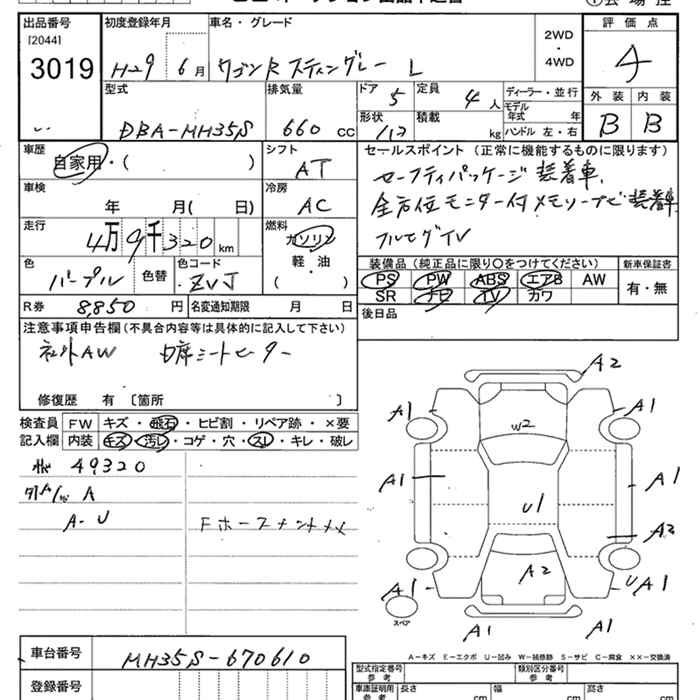 出品番号 初度登録年月 車名・グレード 2WD・4WD 評価点
[2044]
3019 H29 6月 ワゴンR スティングレー L 4
型式 排気量 ドア 5 定員 4人 ディーラー・並行 外装 内装
DBA-MH35S 660cc 形状 積載 kg モデル年式 年 B B
ハンドル 左・右
車歴 シフト セールスポイント (正常に機能するものに限ります)
自家用・( ) AT セーフティパッケージ装着車.
車検 冷房 全方位モニター付メモリーナビ装着車
年 月( 日) AC フルセグTV
走行 燃料
4万9千320km ガソリン 軽・油 ( )
色 色替 色コード 装備品 (純正品に限り○をつけてください) 新車保証書
パープル ZVJ PS PW ABS エアB AW 有・無
SR ナビ TV カワ
R券 8,850円 名変通知期限 月 日 後日品
注意事項申告欄 (不具合内容等は具体的に記入して下さい)
社外AW
修復歴 有 〔箇所 〕
検査員 FW キズ・飛石・ヒビ割・リペア跡・×要
記入欄 内装 キズ・汚レ・コゲ・穴・スレ・キレ・破レ
49320
A
A-U
A2
A1 A1
W2
A1 U1 A1
A2
A2
A1 UA1
スペア
A1 A1
A-キズ E-エクボ U-凹み W-補修跡 S-サビ C-腐食 ××-交換済
車台番号 MH35S-670610
型式指定番号 参考 類別区分番号 参考
登録番号
車庫証明用 参考 長さ cm 幅 cm 高さ cm